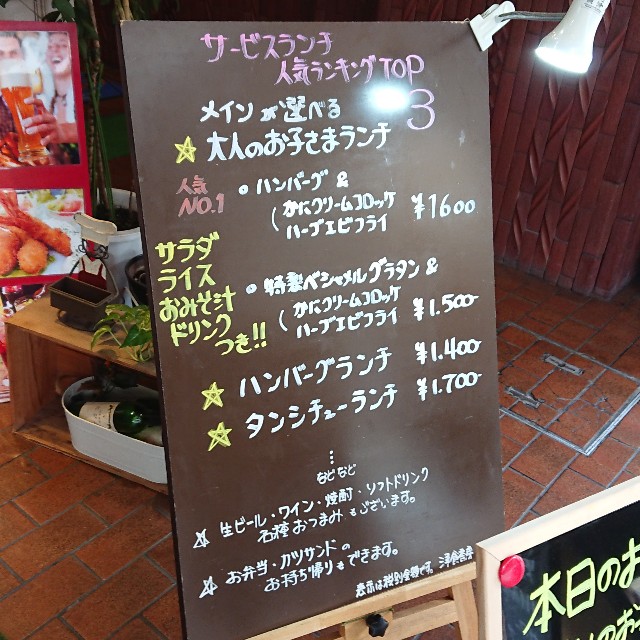 サービスランチ
人気ランキングTOP
3
メインが選べる
☆大人のお子さまランチ
人気
NO.1
・ハンバーグ &
(かにクリームコロッケ
ハーブエビフライ ¥1600
サラダ
ライス
おみそ汁
ドリンク
つき!!
・特製ベシャメルグラタン &
(かにクリームコロッケ
ハーブエビフライ ¥1.500-
☆ハンバーグランチ ¥1.400-
☆タンシチューランチ ¥1.700-
などなど
☆生ビール・ワイン・焼酎・ソフトドリンク
各種おつまみもございます。
☆お弁当・カツサンドの
お持ち帰りもできます。
表示は税別金額です。
本日のお